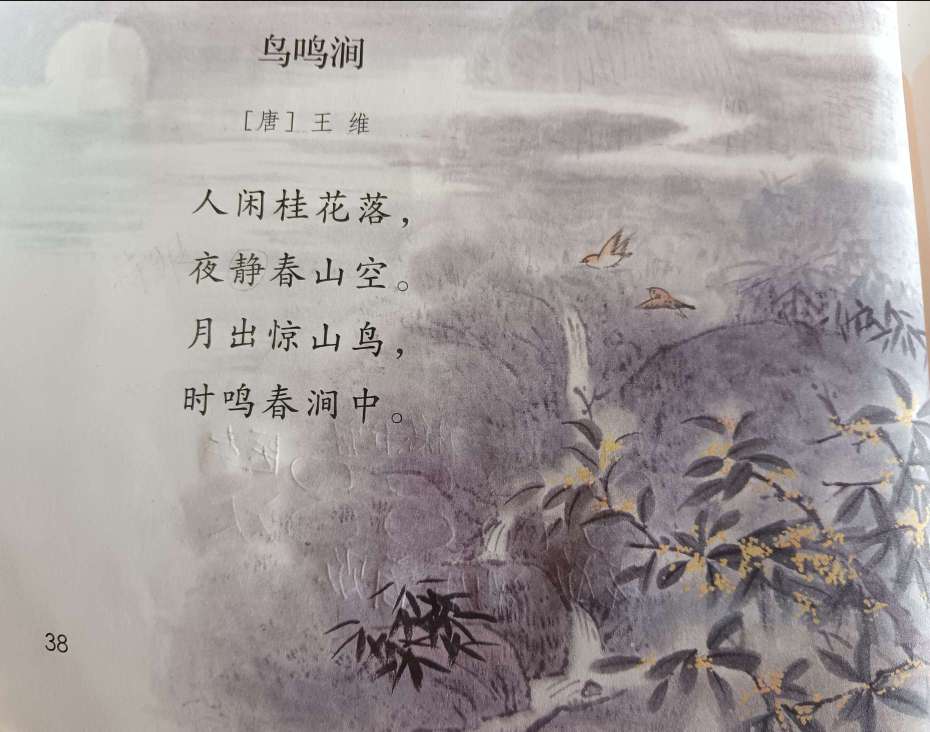 鸟鸣涧
［唐］王 维
人闲桂花落，
夜静春山空。
月出惊山鸟，
时鸣春涧中。
38